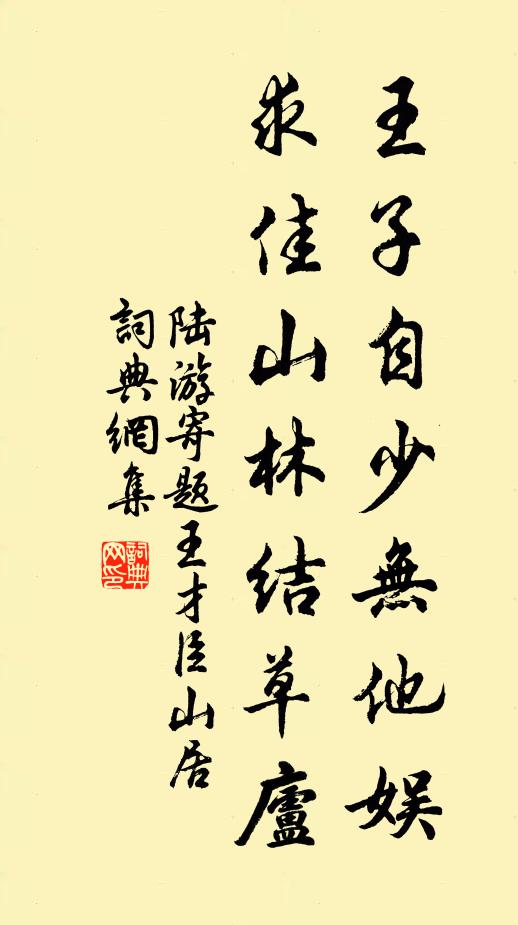 王子自少無他娛
求佳山林結草廬
陸游寄題王才臣山居
詞典網集
詞典
网印